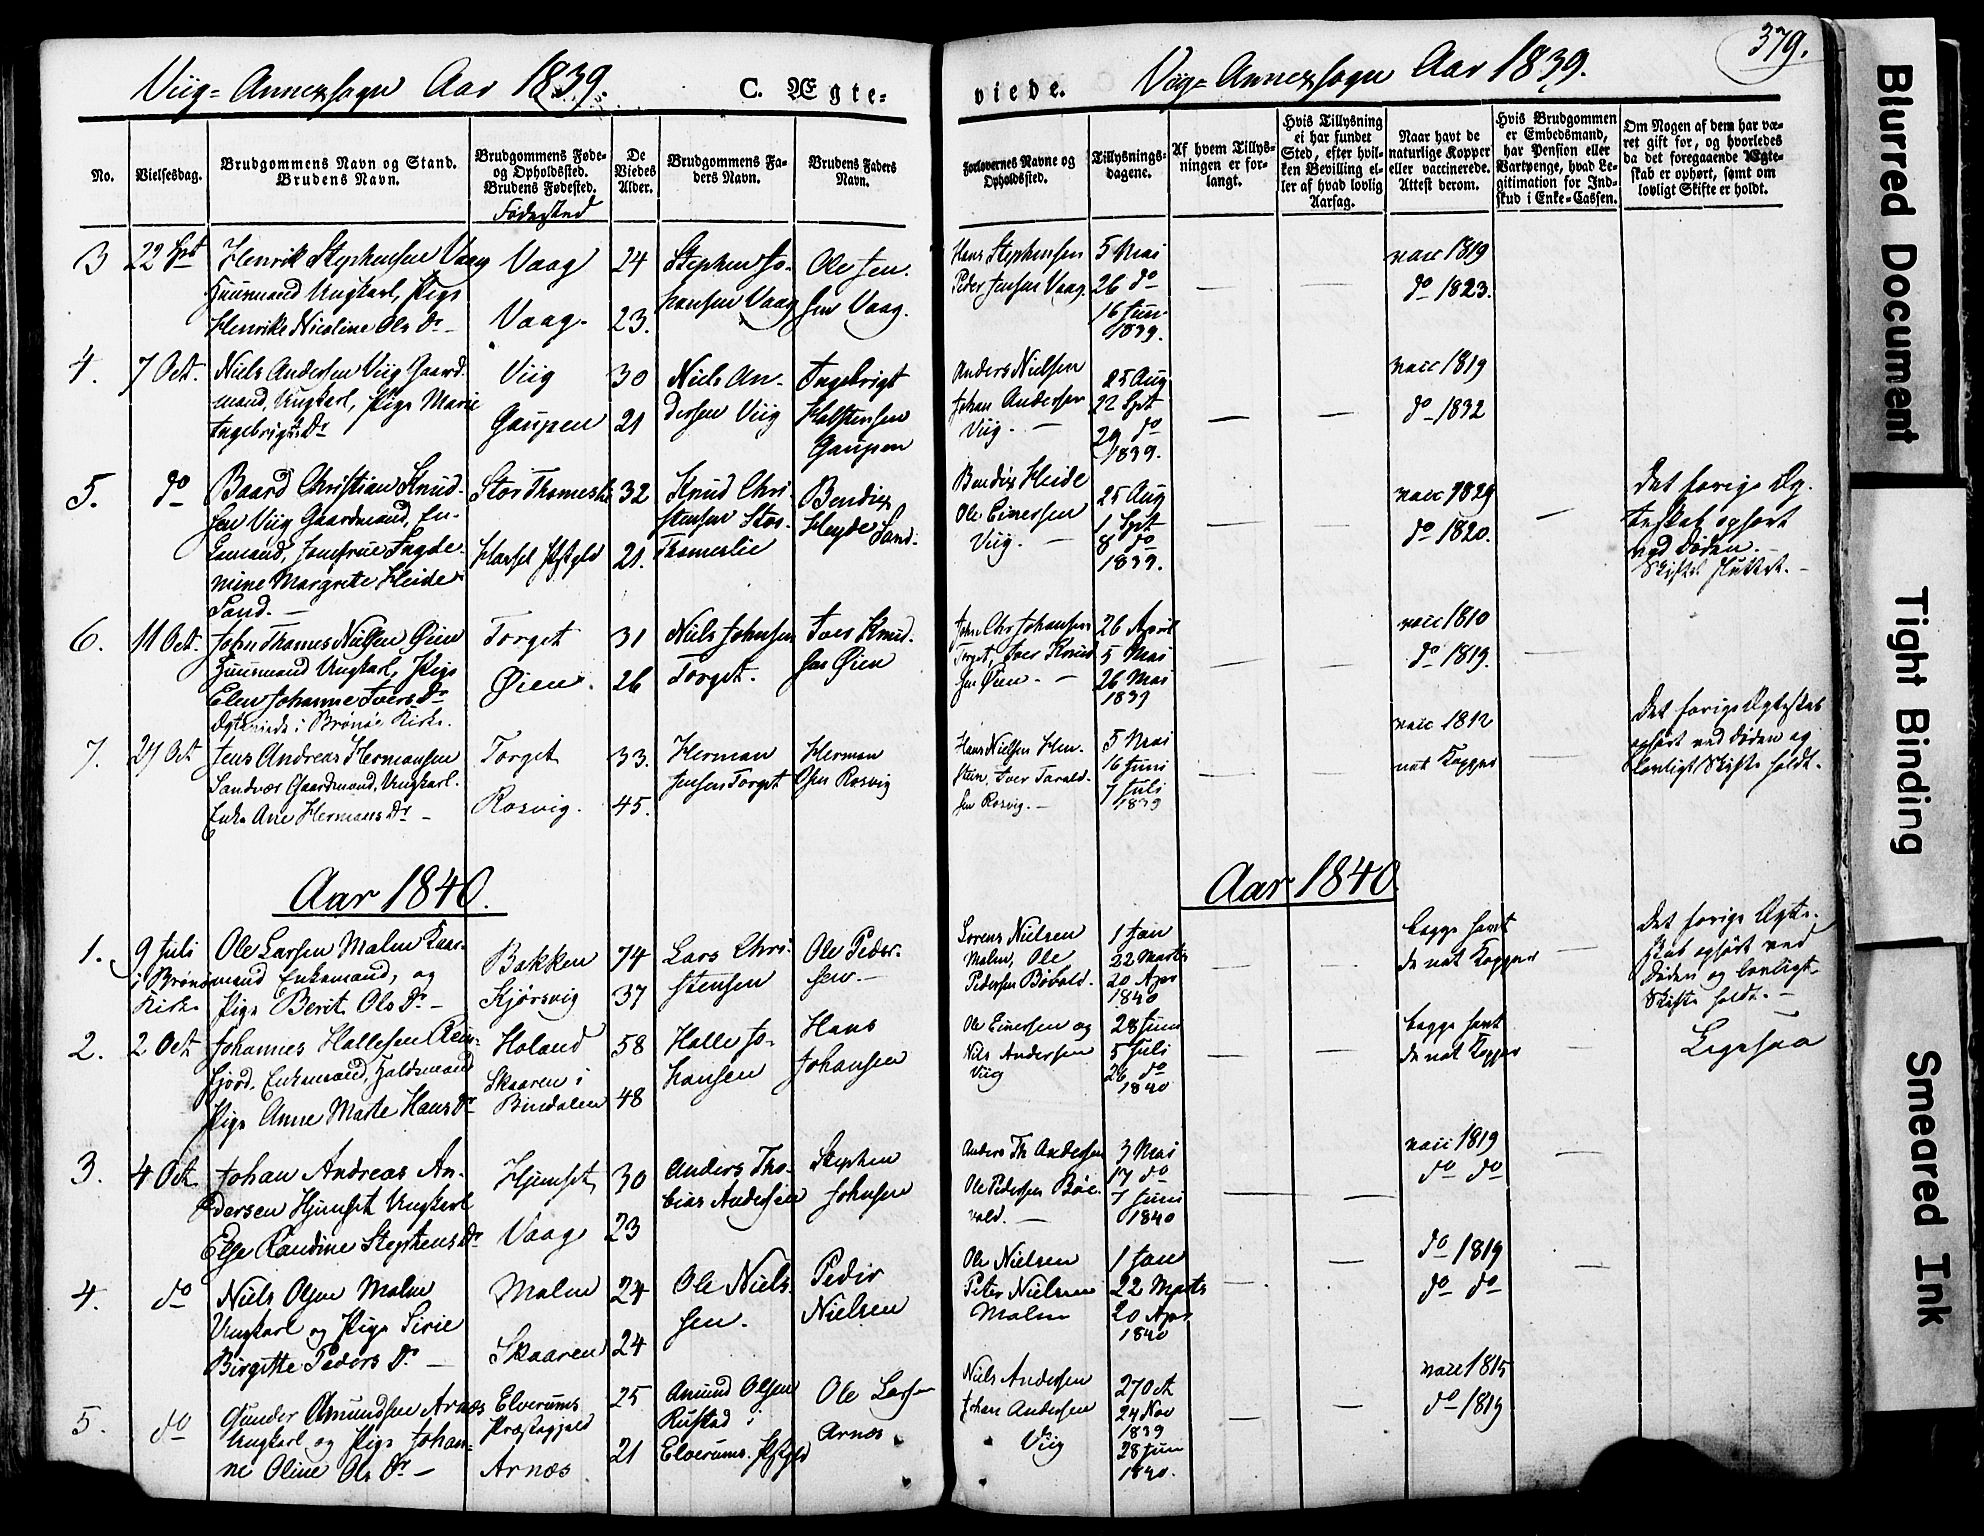 Viig- Annexsogn Aar 1839.
C. Ægte-
No.
Vielsesdag.
Brudgommens Navn og Stand.
Brudens Navn.
Brudgommens Føde-
og Opholdssted.
Brudens Fødested.
Fødested
De
Viedes
Alder.
Brudgommens Fa-
ders Navn.
Brudens Faders
Navn.
3
22 Spt
Henrik Stephensen Vaag
Huusmand Ungkarl, Pige
Henrike Nicoline Ols Dr
Vaag
Vaag.
24
23.
Stephen Jo-
hansen Vaag
Ole Jen-
sen Vaag.
4.
7 Oct.
Niels Andersen Viig Gaard-
mand, Ungkarl, Pige Marie
Ingebrigts Dr
Viig
Gaupen
30
21
Niels An-
dersen Viig
Ingebrigt
Halstensen
Gaupen
5.
do
Baard Christian Knud-
sen Viig Gaardmand, En-
kemand, Jomfrue Ingde-
mine Margrete Heide
Sand.
Stor Thomeslie
Præstgjeld
32
21.
Knud Chri-
stensen Stor-
Thomeslie
Bendix
Heyde Sand.
6.
11 Oct.
John Thomes Nielsen Øien
Huusmand Ungkarl, Pige
Elen Johanne Ivers Dr
Ægteviede i Brønøe Kirke.
Torget
Øien.
31
26
Niels Johnsen
Torget.
Iver Knud-
sen Øien
7.
29 Oct
Jens Andreas Hermansen
Sandvær Gaardmand, Ungkarl.
Enke Ane Hermans Dr
Torget
Rosvig.
33.
45.
Herman
Jensen Torget
Herman
Olsen Rosvig
Aar 1840.
1.
9 Juli
i Brønø
Kirke
Ole Larsen Malm Kaar-
mand Enkemand, og
Pige Berit Ols Dr
Bakken
Kjørsvig
74
37
Lars Chri-
stensen
Ole Peder-
sen
2.
2 Oct
Johannes Hallesen
fjord. Enkemand,
Pige Anne Marte Hans Dr
Holand
Skaaren i
Bindalen
58
48
Halle Jo-
hansen
Hans
Johansen
3.
4 Oct.
Johan Andreas An-
dersen Hjemset Ungkarl
Else Randine Stephens Dr
Hjemset
Vaag
30
23
Anders Tho-
bias Andersen
Stephen
Johnsen
4.
do
Niels Olsen Malm
Ungkarl og Pige Sirie
Birgitte Peders Dr
Malm
Skaaren
24
24
Ole Niels-
sen.
Peder
Nielsen
5.
do
Gunder Amundsen Arnæs
Ungkarl og Pige Johan-
ne Oline Ols Dr
Elverums
Præstegjeld
Arnæs
25
21
Amund Olsen
Rustad i
Elverums Pstgld
Ole Larsen
Arnæs
379.
viede.
Viig- Annexsogn Aar 1839.
Forlovernes Navne og
Opholdssted.
Tillysnings-
dagene.
Af hvem Tillys-
ningen er for-
langt.
Hvis Tillysning
ei har fundet
Sted, efter hvil-
ken Bevilling el-
ler af hvad lovlig
Aarsag.
Naar havt de
naturlige Kopper
eller vaccinerede.
Attest derom.
Hvis Brudgommen
er Embedsmand,
har Pension eller
Vartpenge, hvad Le-
gitimation for Ind-
skud i Enke-Cassen.
Om Nogen af dem har væ-
ret gift før, og hvorledes
da det foregaaende Ægte-
skab er ophørt, samt om
lovligt Skifte er holdt.
Hans Stephensen
Peder Jensen Vaag
5 Mai
26 do
16 Juni
1839.
vacc 1819
do 1823.
Anders Nielsen
Johan Andersen
Viig.
25 Aug
22 Spt
29 do
1839.
vacc 1819
do 1832
Bendix Heide
Ole Einersen
Viig.
25 Aug
1 Spt
8 do
1839.
vacc 1829
do 1820.
Det forige Æg-
teskab ophørt
ved Døden.
Skiftet sluttet.
John Chr Johansen
Torget, Iver Knud-
sen Øien.
26 April
5 Mai
26 Mai
1839
vacc 1810
do 1819.
Hans Nielsen
Iver Tarald-
sen Rosvig.
5 Mai
16 Juni
7 Juli
1839
vacc 1812
nat Kopper
Det forige Ægteskab
ophørt ved Døden og
lovligt Skifte holdt.
Aar 1840.
Lorens Nielsen
Malm, Ole
Pedersen Bøvald.
1 Jan
22 Marts
20 Apr
1840
begge havt
de nat Kopper
Det forige Ægte-
skab ophørt ved
Døden og lovligt
Skifte holdt.
Ole Einersen og
Nils Andersen
Viig
28 Juni
5 Juli
26 do
1840
begge havt
de nat Kopper
Ligesaa
Anders Th Andersen
Ole Pedersen Bøe-
vald.
3 Mai
17 do
7 Juni
1840
vacc 1819
do do
Ole Nielsen
Peter Nielsen
Malm
1 Jan
22 Marts
20 Apr
1840
do 1819
do do
Niels Andersen
Johan Andersen
Viig
27 Oct
24 Nov
1839
28 Juni
1840.
vacc 1815
do 1819
Blurred Document
Tight Binding
Smeared Ink